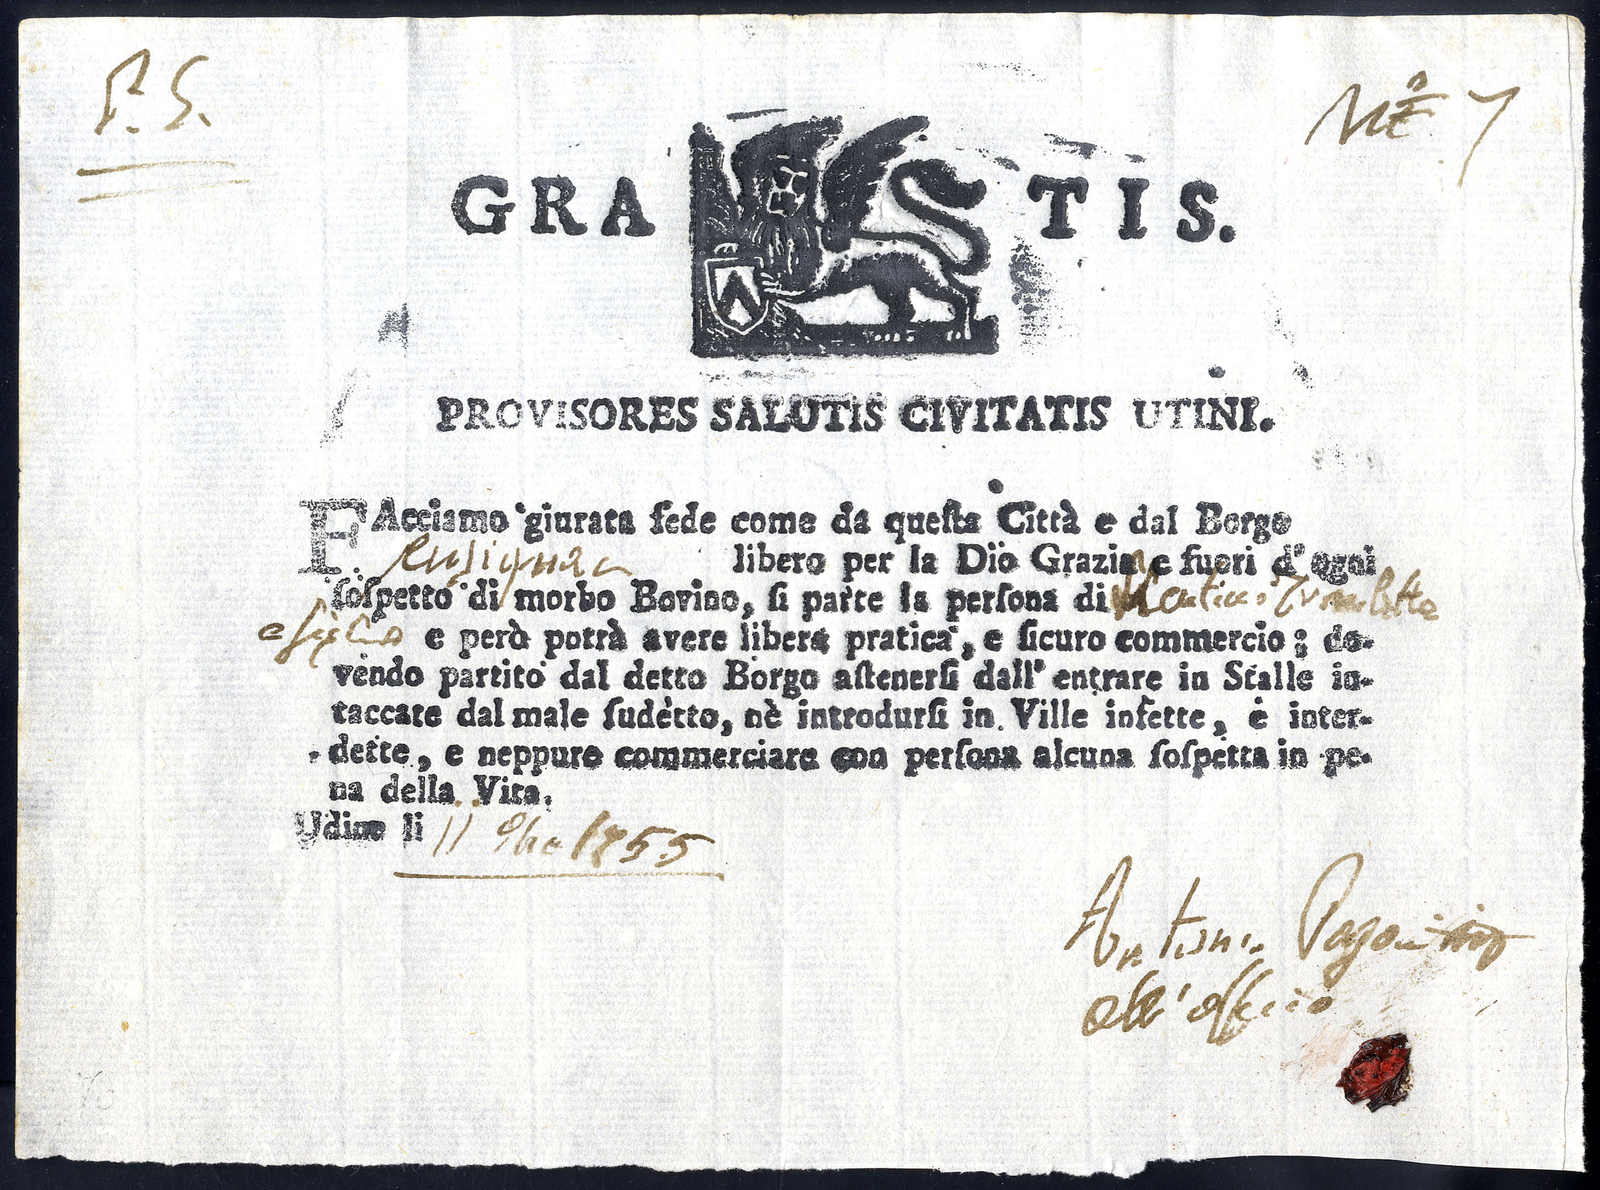 P. S.
GRATIS.
PROVISORES SALUTIS CIVITATIS UTINI.
FAcciamo giurata fede come da questa Città e dal Borgo
libero per la Dio Grazia e fuori d' ogni
sospetto di morbo Bovino, si parte la persona di
e però potrà avere libera pratica, e sicuro commercio; do-
vendo partito dal detto Borgo astenersi dall' entrare in Stalle in-
taccate dal male sudetto, nè introdursi in Ville infette, e inter-
dette, e neppure commerciare con persona alcuna sospetta in pe-
na della Vita.
Udine li 11 1755
Antonio
all' officio